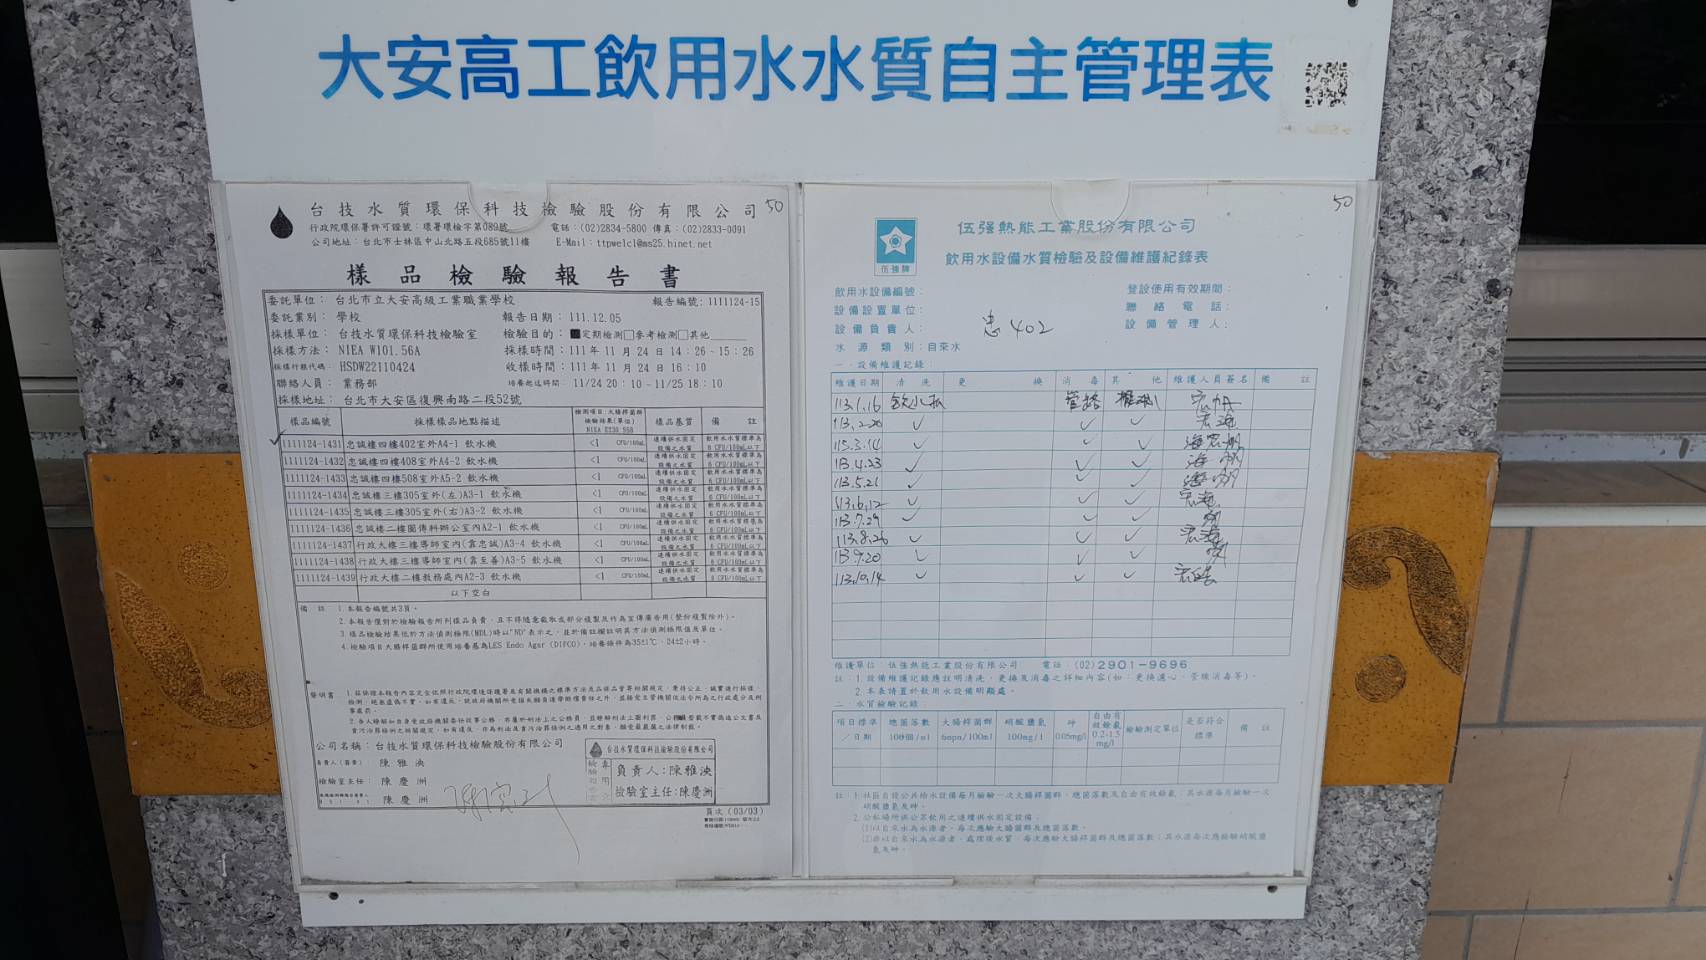 大安高工飲用水水質自主管理表
50
台技水質環保科技檢驗股份有限公司
行政院環保署許可證號：環署環檢字第089號 電話：(02)2834-5800 傳真：(02)2833-0091
公司地址：台北市士林區中山北路五段685號11樓 E-Mail：ttpwelcl@ms25.hinet.net
樣品檢驗報告書
委託單位：台北市立大安高級工業職業學校 報告編號：1111124-15
委託業別：學校 報告日期：111.12.05
採樣單位：台技水質環保科技檢驗室 檢驗目的：■定期檢測□參考檢測□其他
採樣方法：NIEA W101.56A 採樣時間：111年11月24日14：26~15：26
採樣行程代碼：HSDW22110424 收樣時間：111年11月24日16：10
聯絡人員：業務部 培養起迄時間：11/24 20：10~11/25 18：10
採樣地址：台北市大安區復興南路二段52號
樣品編號 採樣樣品地點描述 檢測項目：大腸桿菌群 檢驗結果(單位) NIEA E230.55B 樣品基質 備註
1111124-1431 忠誠樓四樓402室外A4-1 飲水機 <1 CFU/100mL 連續供水固定設備之水質 飲用水水質標準為6 CFU/100mL以下
1111124-1432 忠誠樓四樓408室外A4-2 飲水機 <1 CFU/100mL 連續供水固定設備之水質 飲用水水質標準為6 CFU/100mL以下
1111124-1433 忠誠樓四樓508室外A5-2 飲水機 <1 CFU/100mL 連續供水固定設備之水質 飲用水水質標準為6 CFU/100mL以下
1111124-1434 忠誠樓三樓305室外(左)A3-1 飲水機 <1 CFU/100mL 連續供水固定設備之水質 飲用水水質標準為6 CFU/100mL以下
1111124-1435 忠誠樓三樓305室外(右)A3-2 飲水機 <1 CFU/100mL 連續供水固定設備之水質 飲用水水質標準為6 CFU/100mL以下
1111124-1436 忠誠樓二樓圖傳科辦公室內A2-1 飲水機 <1 CFU/100mL 連續供水固定設備之水質 飲用水水質標準為6 CFU/100mL以下
1111124-1437 行政大樓三樓導師室內(靠忠誠)A3-4 飲水機 <1 CFU/100mL 連續供水固定設備之水質 飲用水水質標準為6 CFU/100mL以下
1111124-1438 行政大樓三樓導師室內(靠至善)A3-5 飲水機 <1 CFU/100mL 連續供水固定設備之水質 飲用水水質標準為6 CFU/100mL以下
1111124-1439 行政大樓二樓教務處內A2-3 飲水機 <1 CFU/100mL 連續供水固定設備之水質 飲用水水質標準為6 CFU/100mL以下
以下空白
備註 1.本報告編號共3頁。
2.本報告僅對於檢驗報告所列樣品負責，且不得隨意截取或部分複製及作為宣傳廣告用(整份複製除外)。
3.樣品檢驗結果低於方法偵測極限(MDL)時以"ND"表示之，並於備註欄註明其方法偵測極限值及單位。
4.檢驗項目大腸桿菌群所使用培養基為LES Endo Agar (DIFCO)，培養條件為35±1℃、24±2小時。
聲明書
公司名稱：台技水質環保科技檢驗股份有限公司
負責人(簽章) 陳雅泱
檢驗室主任： 陳慶洲
陳慶洲
台技水質環保科技檢驗股份有限公司
負責人：陳雅泱
檢驗室主任：陳慶洲
頁次 (03/03)
50
伍強牌
伍强熱能工業股份有限公司
飲用水設備水質檢驗及設備維護紀錄表
飲用水設備編號： 登設使用有效期間：
設備設置單位： 聯絡電話：
設備負責人： 忠402 設備管理人：
水源類別：自來水
一、設備維護記錄
維護日期 清洗 更換 消毒 其他 維護人員簽名 備註
113.1.16 飲水机 管路
113.2.20 ✓ ✓ ✓
113.3.14 ✓ ✓ ✓
113.4.23 ✓ ✓ ✓
113.5.21 ✓ ✓ ✓
113.6.12 ✓ ✓ ✓
113.7.29 ✓ ✓ ✓
113.8.26 ✓ ✓ ✓
113.9.20 ✓ ✓ ✓
113.10.14 ✓ ✓ ✓
維護單位：伍強熱能工業股份有限公司 電話：(02)2901-9696
註：1.設備維護記錄應註明清洗、更換及消毒之詳細內容(如：更換濾心、管線消毒等)。
2.本表請置於飲用水設備明顯處。
二、水質檢驗記錄
項目標準／日期 總菌落數 100個/ml 大腸桿菌群 6mpn/100ml 硝酸鹽氮 100mg/l 砷 0.05mg/l 自由有效餘氯 0.2-1.5 mg/l 檢驗測定單位 是否符合標準 備註
註：1.社區自設公共給水設備每月檢驗一次大腸桿菌群、總菌落數及自由有效餘氯；其水源每月檢驗一次硝酸鹽氮及砷。
2.公私場所供公眾飲用之連續供水固定設備：
(1)以自來水為水源者，每次應驗大腸桿菌群及總菌落數。
(2)非以自來水為水源者，處理後水質，每次應驗大腸桿菌群及總菌落數；其水源每次應檢驗硝酸鹽氮及砷。